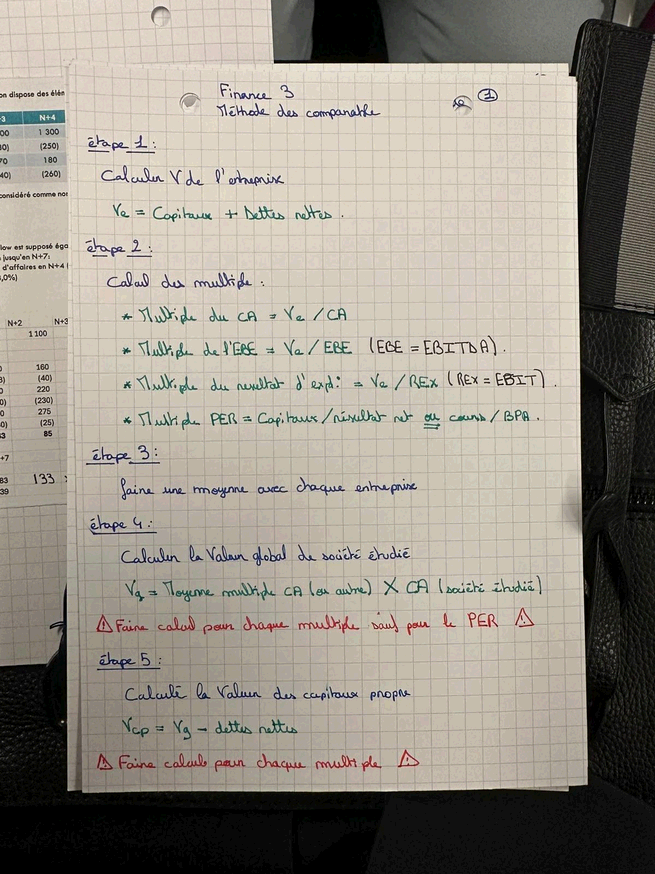 on dispose des élén
-3 N+4
00 1 300
30) (250)
70 180
40) (260)
considéré comme nor
low est supposé éga
jusqu'en N+7:
d'affaires en N+4 (
,0%)
N+2 N+3
1 100
160
(40)
220
(230)
275
(25)
85
+7
83 133
39
Finance 3
Méthode des comparable
①
étape 1 :
Calculer V de l'entreprise
Ve = Capitaux + Dettes nettes .
étape 2 :
Calcul des multiple :
* Multiple du CA = Ve / CA
* Multiple de l'EBE = Ve / EBE (EBE = EBITDA) .
* Multiple du resultat d'expl : = Ve / REX (REX = EBIT) .
* Multiple PER = Capitaux / résultat net ou cours / BPA .
étape 3 :
faire une moyenne avec chaque entreprise
étape 4 :
Calculer la Valeur global de société étudié
Vg = Moyenne multiple CA (ou autre) X CA (société étudié)
⚠ Faire calcul pour chaque multiple sauf pour le PER ⚠
étape 5 :
Calculé la Valeur des capitaux propre
Vcp = Vg - dettes nettes
⚠ Faire calculs pour chaque multiple ⚠